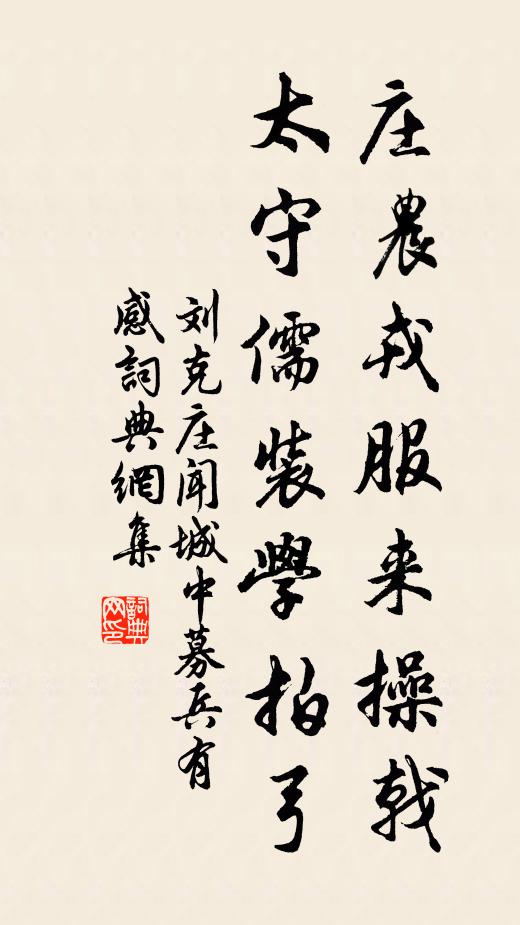 庄農戎服来操戟
太守儒裝學拍弓
刘克庄闻城中募兵有
感詞典網集
詞典
网印